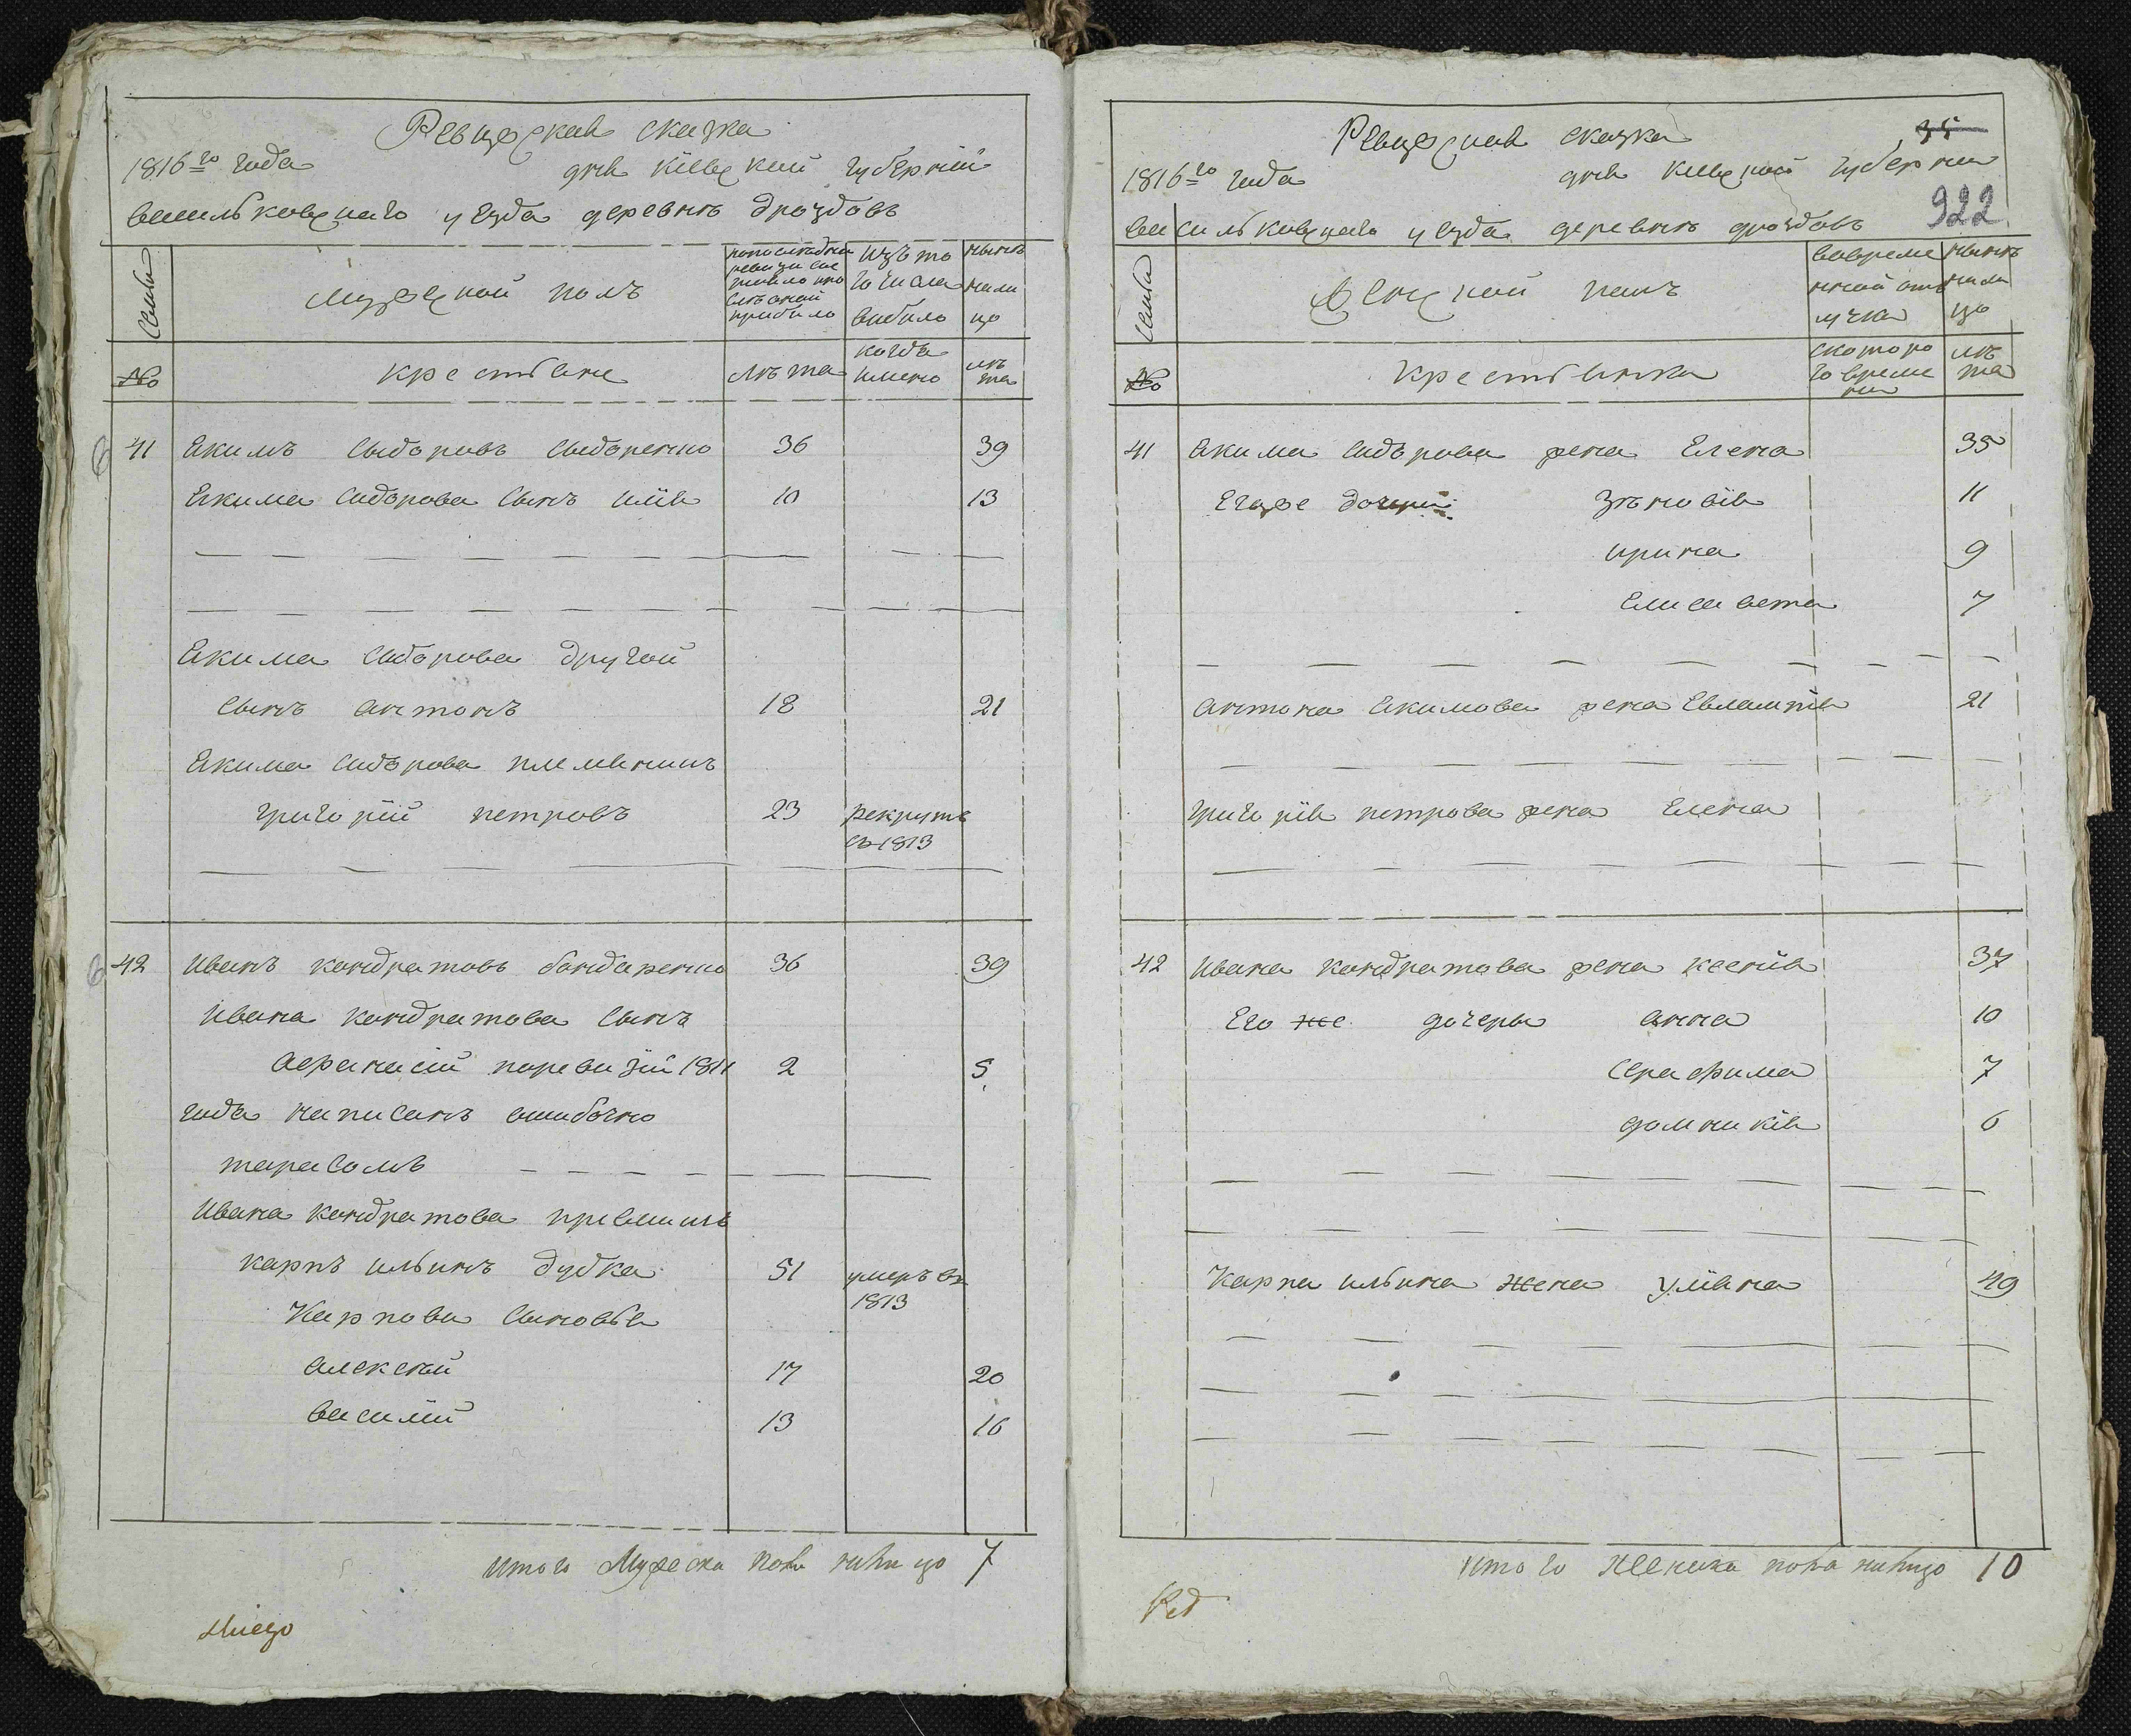 Ревизская сказка
1816го года дня Кіевской губерніи
васильковскаго уезда деревни дроздовъ
Семьи
мужеской полъ
по последней ревизии состояло и после оной прибыло
изъ того числа выбыло
ныне на лицо
№
крестьяне
лѣта
когда имено
лѣта
41 Екимъ Сыдоровъ Сыдоренко 36 39
Екима Сидорова Сынъ илія 10 13
Екима Сидорова другой
Сынъ антонъ 18 21
Екима Сидорова племяникъ
григорій петровъ 23 рекрутъ
въ 1813
42 Иванъ кондратовъ бондаренко 36 39
Ивана кондратова Сынъ
Афанасій поревизіи 1811 2 5
года написанъ ошибочно
тарасомъ
Ивана кондратова приемишъ
карпъ ильинъ дудка 51 умеръ въ
1813
Карпова Сыновья
алексей 17 20
василій 13 16
итого Мужеска пола налицо 7
Ревизская сказка
35
1816го года дня Кіевской губерніи
922
васильковскаго уезда деревни дроздовъ
Семьи
Женской полъ
вовременной отлучке
ныне налицо
№
крестьянка
скоторого времени
лѣта
41 Екима Сидорова жена Елена 35
Егоже дочери Зѣновія 11
ирина 9
Елисавета 7
антона Екимова жена Евлампія 21
григорія петрова жена Елена
42 Ивана кондратова жена ксенія 37
Его же дочеры анна 10
Серафима 7
домникія 6
Карпа ильина жена уліяна 49
итого женска пола налицо 10